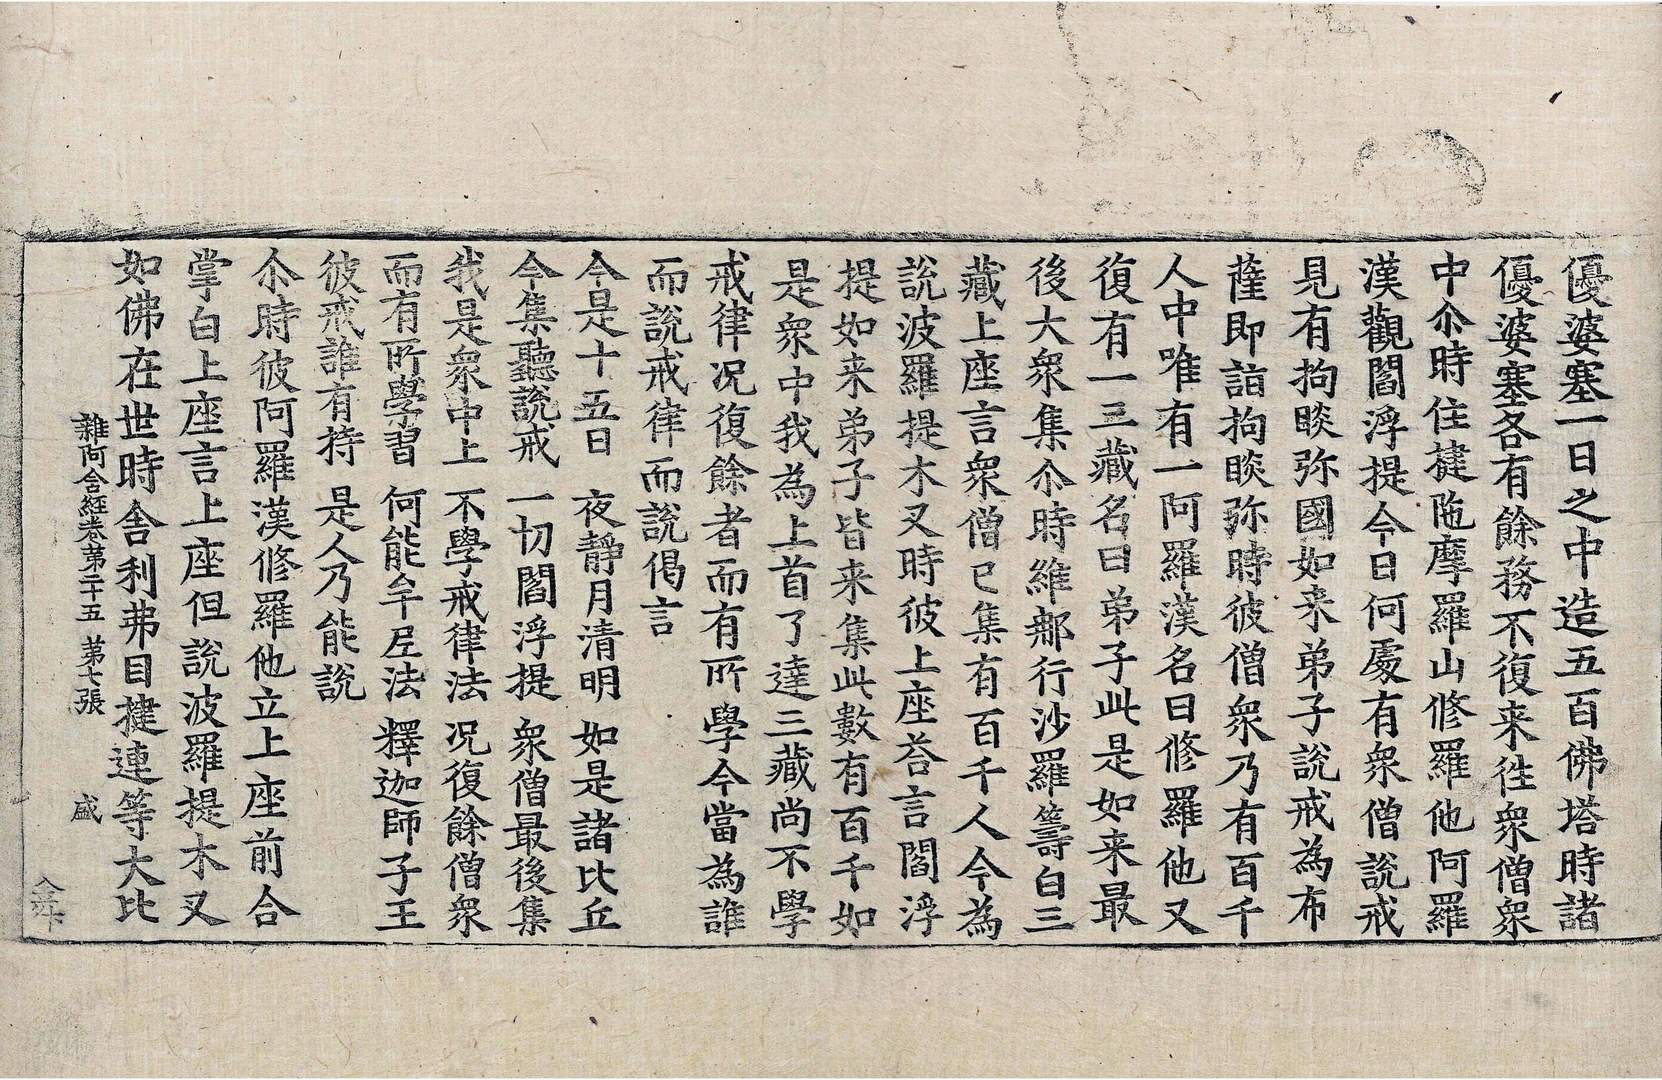 優婆塞一日之中造五百佛塔時諸
優婆塞各有餘務不復来徃衆僧衆
中尒時住揵陁摩羅山修羅他阿羅
漢觀閻浮提今日何處有衆僧說戒
見有拘睒弥國如来弟子說戒為布
薩即詣拘睒弥時彼僧衆乃有百千
人中唯有一阿羅漢名曰修羅他又
復有一三藏名曰弟子此是如来最
後大衆集尒時維那行沙羅籌白三
藏上座言衆僧已集有百千人今為
說波羅提木叉時彼上座荅言閻浮
提如来弟子皆来集此數有百千如
是衆中我為上首了達三藏尚不學
戒律况復餘者而有所學今當為誰
而說戒律而說偈言
今是十五日　夜靜月清明　如是諸比丘
今集聽說戒　一切閻浮提　衆僧最後集
我是衆中上　不學戒律法　况復餘僧衆
而有所學習　何能牟尼法　釋迦師子王
彼戒誰有持　是人乃能說
尒時彼阿羅漢修羅他立上座前合
掌白上座言上座但說波羅提木叉
如佛在世時舍利弗目揵連等大比
雜阿含經卷第二十五　第七張　盛